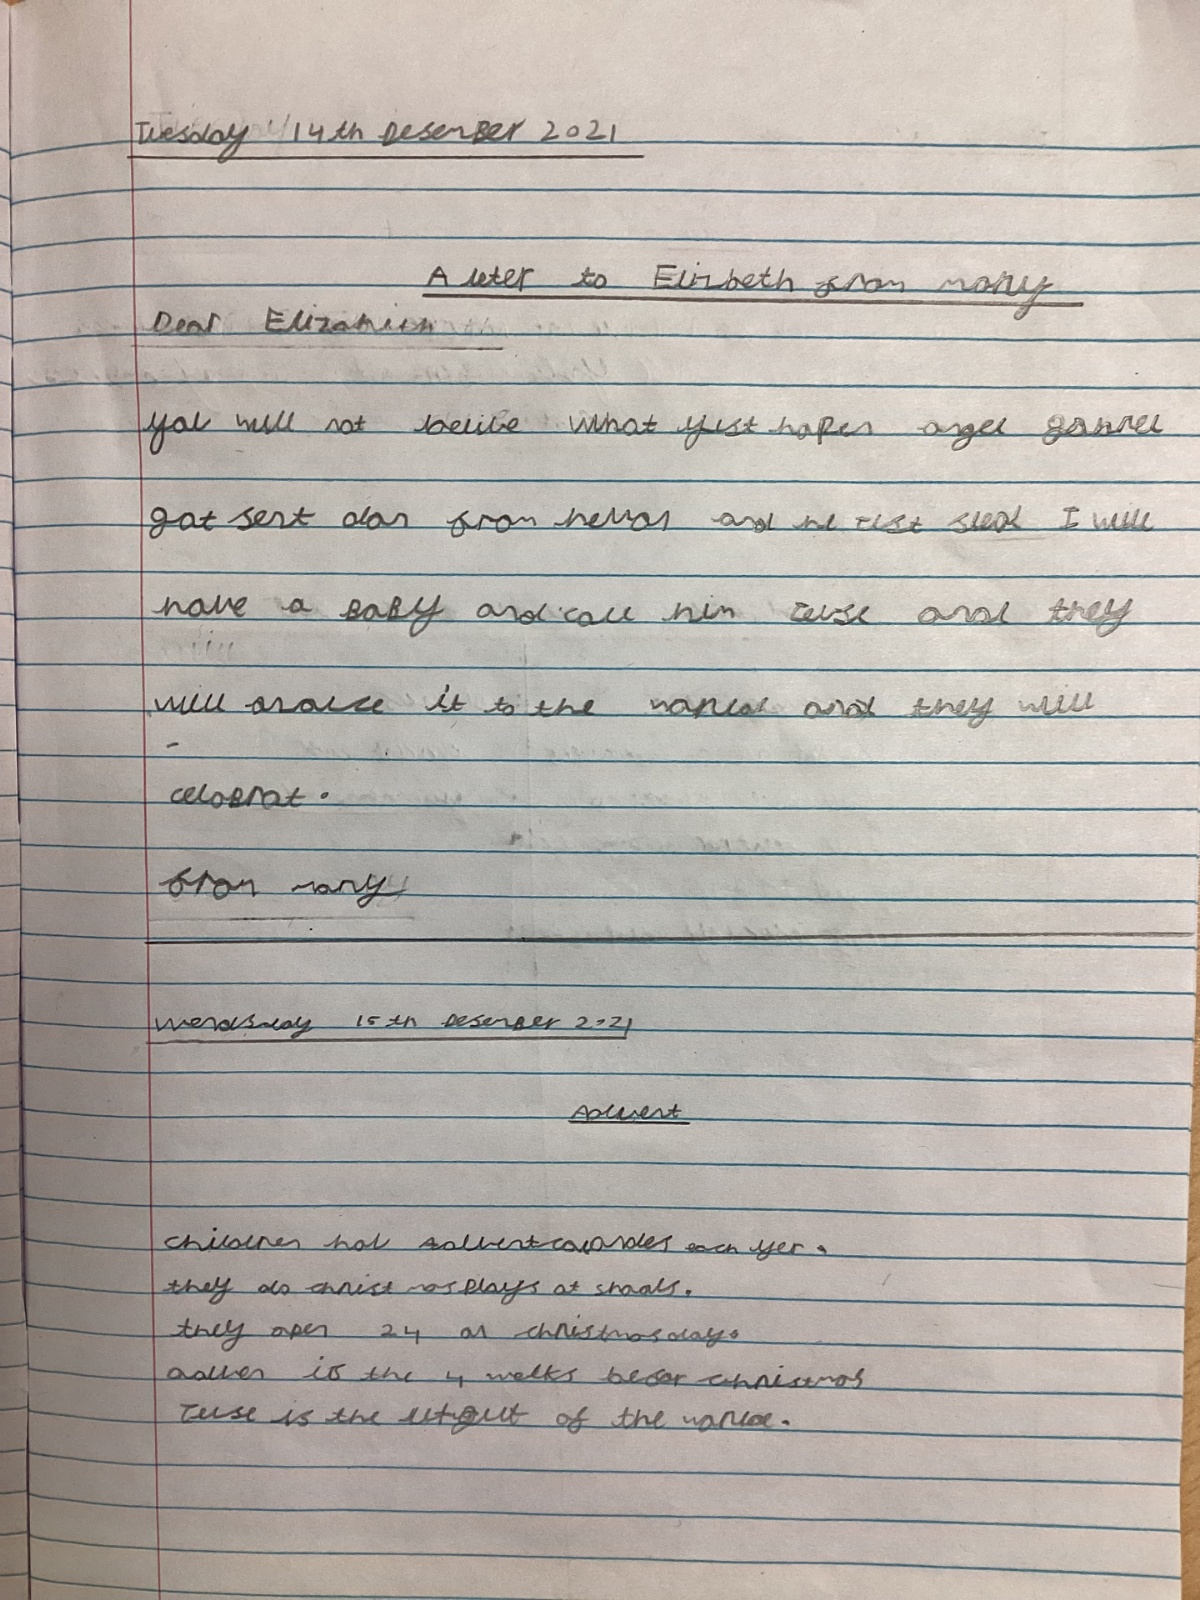 Tuesday 14th DesemBer 2021
A leter to Elizbeth from mary
Dear Elizabeth
you will not belive what yust hapen angel gabriel
got sent dan from hevan and he said I will
have a BaBy and call him and they
will it to the and they will
celoBrat.
from mary
Wendsday 15th DesemBer 2021
Advent
children hav each yer.
they do christmas Plays at shools.
they open 24 on christmas day.
adven is the 4 weeks befor christmas
is the of the